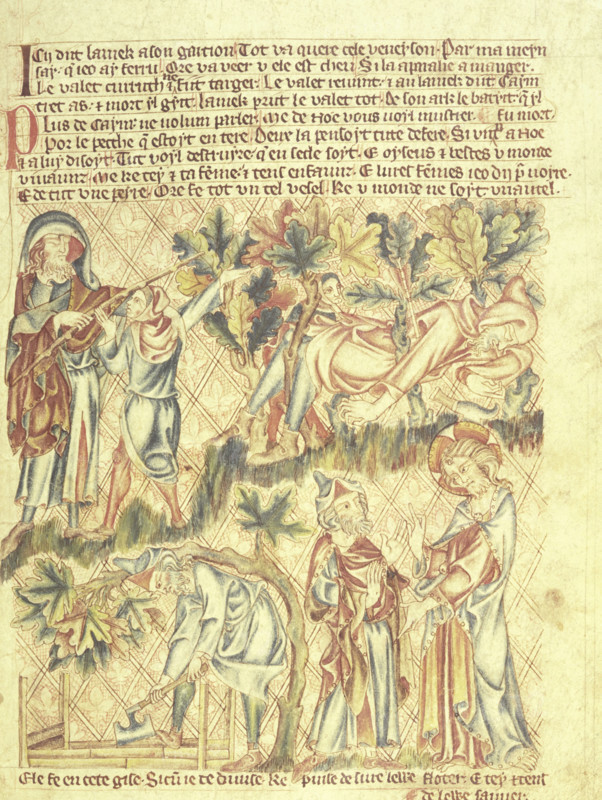 Icy dit lamek a son garcion. Tot va quere cele veneyson. Par ma meyn
say. q ieo ay ferru. Ore va veer v ele est cheu. Si la aparaile a manger.
Le valet curruth ne fut targer. Le valet revint. e au lamek dut. Caym
tret as. e mort yl gyst. lamek prit le valet tot. De son ark le batyt. q yl
fu mort.
Plus de Caym ne volum parler. Me de Noe vous voyl mustrer.
Por le pecche q estoyt en tere. Deux la pensoyt tute defere. Si vint a Noe
e a luy disoyt. Tut voyl destruyre. q en secle soyt. E oyseus e bestes v monde
vivaunt. Me ke tey e ta feme. e tens enfaunt. E luret femes ieo dy p voyre.
E de tut vne peyre. Ore fe tot vn tel vesel. Ke v monde ne soyt vn autel.
Ele fe en cete gise. Sicum ie te divise. Ke puise de sure lewe floter. E tey e tens
de lewe sauver.